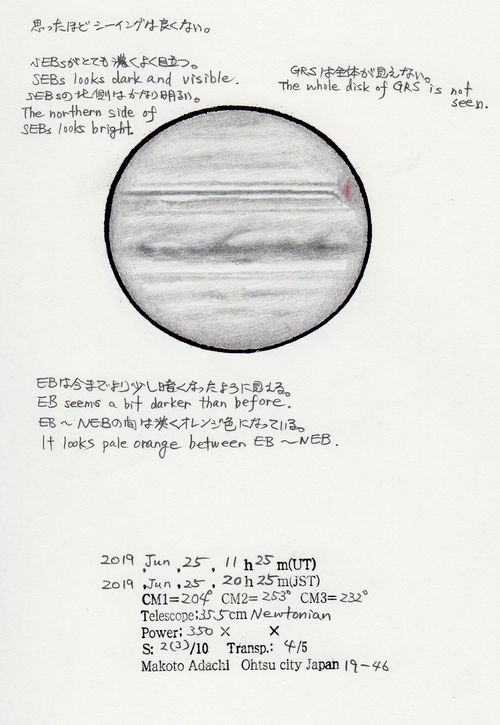 思ったほどシーイングは良くない。
SEBsがとても濃くよく目立つ。
SEBs looks dark and visible.
SEBsの北側はかなり明るい。
The northern side of
SEBs looks bright.
GRSは全体が見えない。
The whole disk of GRS is not
seen.
EBは今までより少し暗くなったように見える。
EB seems a bit darker than before.
EB～NEBの間は淡くオレンジ色になっている。
It looks pale orange between EB ～NEB.
2019 ,Jun ,25 , 11 h 25 m(UT)
2019 ,Jun ,25 , 20 h 25 m(JST)
CM1=204° CM2=253° CM3=232°
Telescope:35.5cm Newtonian
Power: 350 × ×
S: 2(3)/10 Transp.: 4/5
Makoto Adachi Ohtsu city Japan 19-46